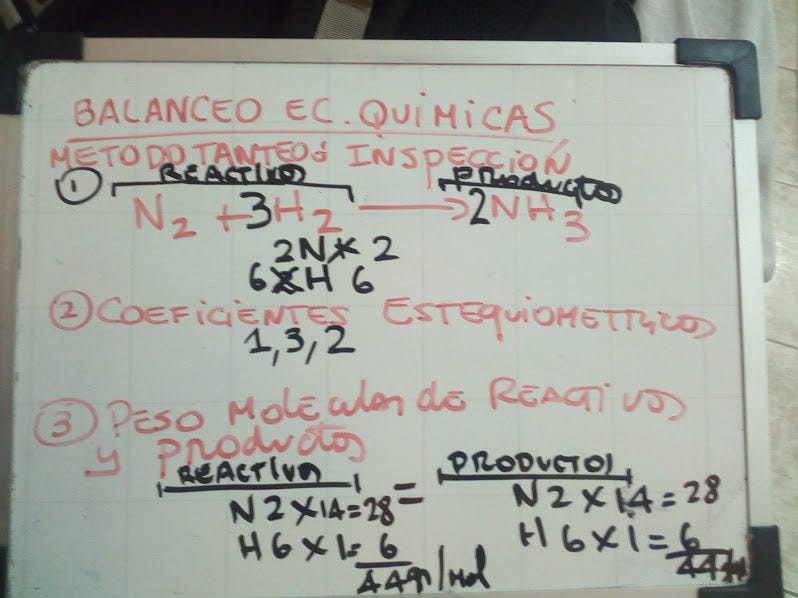 BALANCEO EC. QUIMICAS
METODO TANTEO ó INSPECCIÓN
① REACTIVO PRODUCTO
N2 + 3H2 → 2NH3
2N 2
6 H 6
② COEFICIENTES ESTEQUIOMETRICOS
1, 3, 2
③ PESO Molecular de REACTIVOS
y productos
REACTIVO = PRODUCTOS
N 2 X 14 = 28 N 2 X 14 = 28
H 6 X 1 = 6 H 6 X 1 = 6
44 gr/mol 44